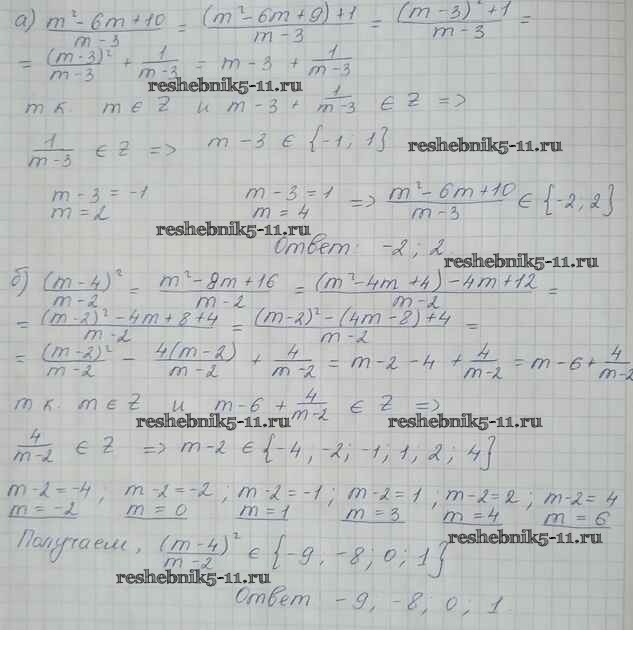 а) (m² - 6m + 10)/(m - 3) = ((m² - 6m + 9) + 1)/(m - 3) = ((m - 3)² + 1)/(m - 3) =
= (m - 3)²/(m - 3) + 1/(m - 3) = m - 3 + 1/(m - 3)
reshebnik5-11.ru
т к. m ∈ Z и m - 3 + 1/(m - 3) ∈ Z =>
1/(m - 3) ∈ Z => m - 3 ∈ {-1; 1}
reshebnik5-11.ru
m - 3 = -1 m - 3 = 1 => (m² - 6m + 10)/(m - 3) ∈ {-2, 2}
m = 2 m = 4
reshebnik5-11.ru
Ответ: -2; 2
reshebnik5-11.ru
б) (m - 4)²/(m - 2) = (m² - 8m + 16)/(m - 2) = ((m² - 4m + 4) - 4m + 12)/(m - 2) =
= ((m - 2)² - 4m + 8 + 4)/(m - 2) = ((m - 2)² - (4m - 8) + 4)/(m - 2) =
= (m - 2)²/(m - 2) - 4(m - 2)/(m - 2) + 4/(m - 2) = m - 2 - 4 + 4/(m - 2) = m - 6 + 4/(m - 2)
т к. m ∈ Z и m - 6 + 4/(m - 2) ∈ Z =>
reshebnik5-11.ru reshebnik5-11.ru
4/(m - 2) ∈ Z => m - 2 ∈ {-4, -2; -1; 1, 2; 4}
m - 2 = -4; m - 2 = -2; m - 2 = -1; m - 2 = 1; m - 2 = 2; m - 2 = 4
m = -2 m = 0 m = 1 m = 3 m = 4 m = 6
reshebnik5-11.ru
Получаем, (m - 4)²/(m - 2) ∈ {-9, -8; 0; 1}
reshebnik5-11.ru
Ответ -9, -8; 0; 1